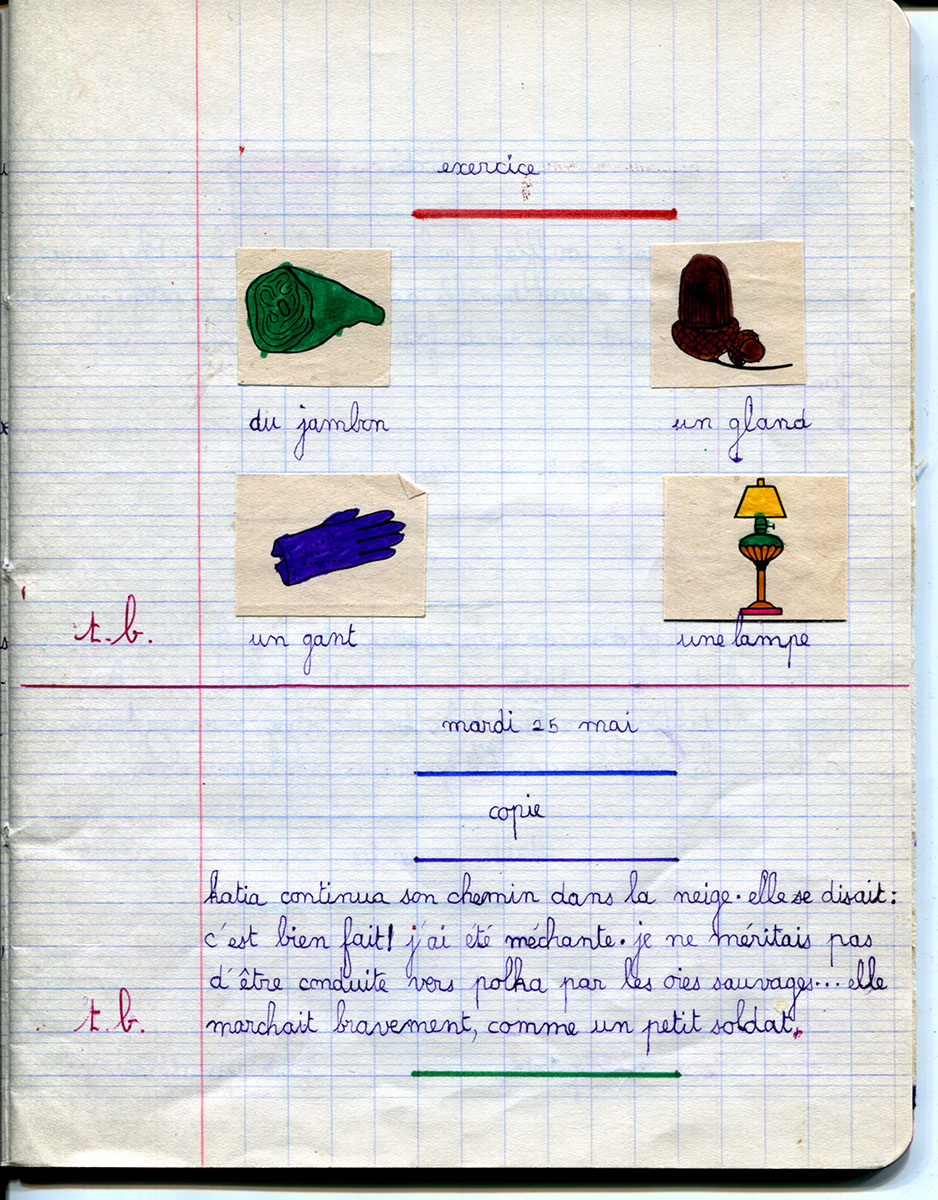 exercice
du jambon
un gland
un gant
une lampe
t.b.
mardi 25 mai
copie
katia continua son chemin dans la neige. elle se disait:
c'est bien fait! j'ai été méchante. je ne méritais pas
d'être conduite vers polka par les oies sauvages... elle
marchait bravement, comme un petit soldat.
t.b.